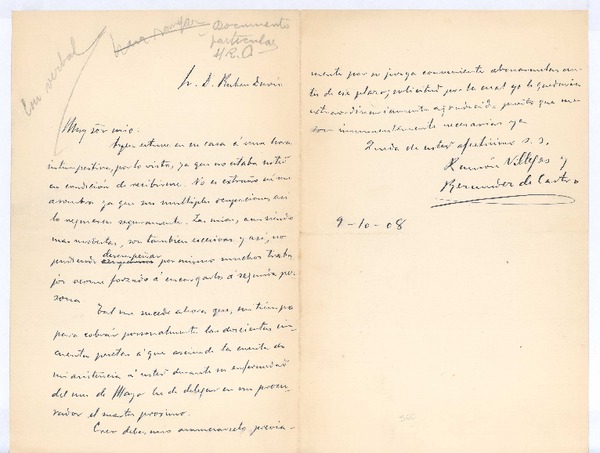 Con verbal
Documento
particular
H R. D
Sr. D. Ruben Darío
Muy sõr mio.
Ayer estuve en su casa á una hora
intempestiva, por lo visto, ya que no estaba usted
en condición de recibirme. No es extraño ni me
asombra ya que sus multiples ocupaciones asi
lo requieren seguramente. Las mias, aun siendo
mas modestas, son tambien excesivas y asi, no
pudiendo desempeñar por mi mismo muchos traba
jos acome forzado á encargarlos á segunda per
sona.
Tal me sucede ahora que, sin tiempo
para cobrar personalmente las doscientas cin
cuenta pesetas á que asciende la cuenta de
mi asistencia á usted durante su enfermedad
del mes de Mayo he de delegar en un procu-
rador el martes proximo.
Creo deber mio anunciarselo previa-
mente por si juzga conveniente abonarmelas an-
tes de ese plazo, solicitud por la cual yo le quedaria
extraordinariamente agradecido puesto que me
son inmensamente necesarias ya
Queda de usted afectisimo s. s.
Ramón Villegas y
Bermudez de Castro
9-10-08